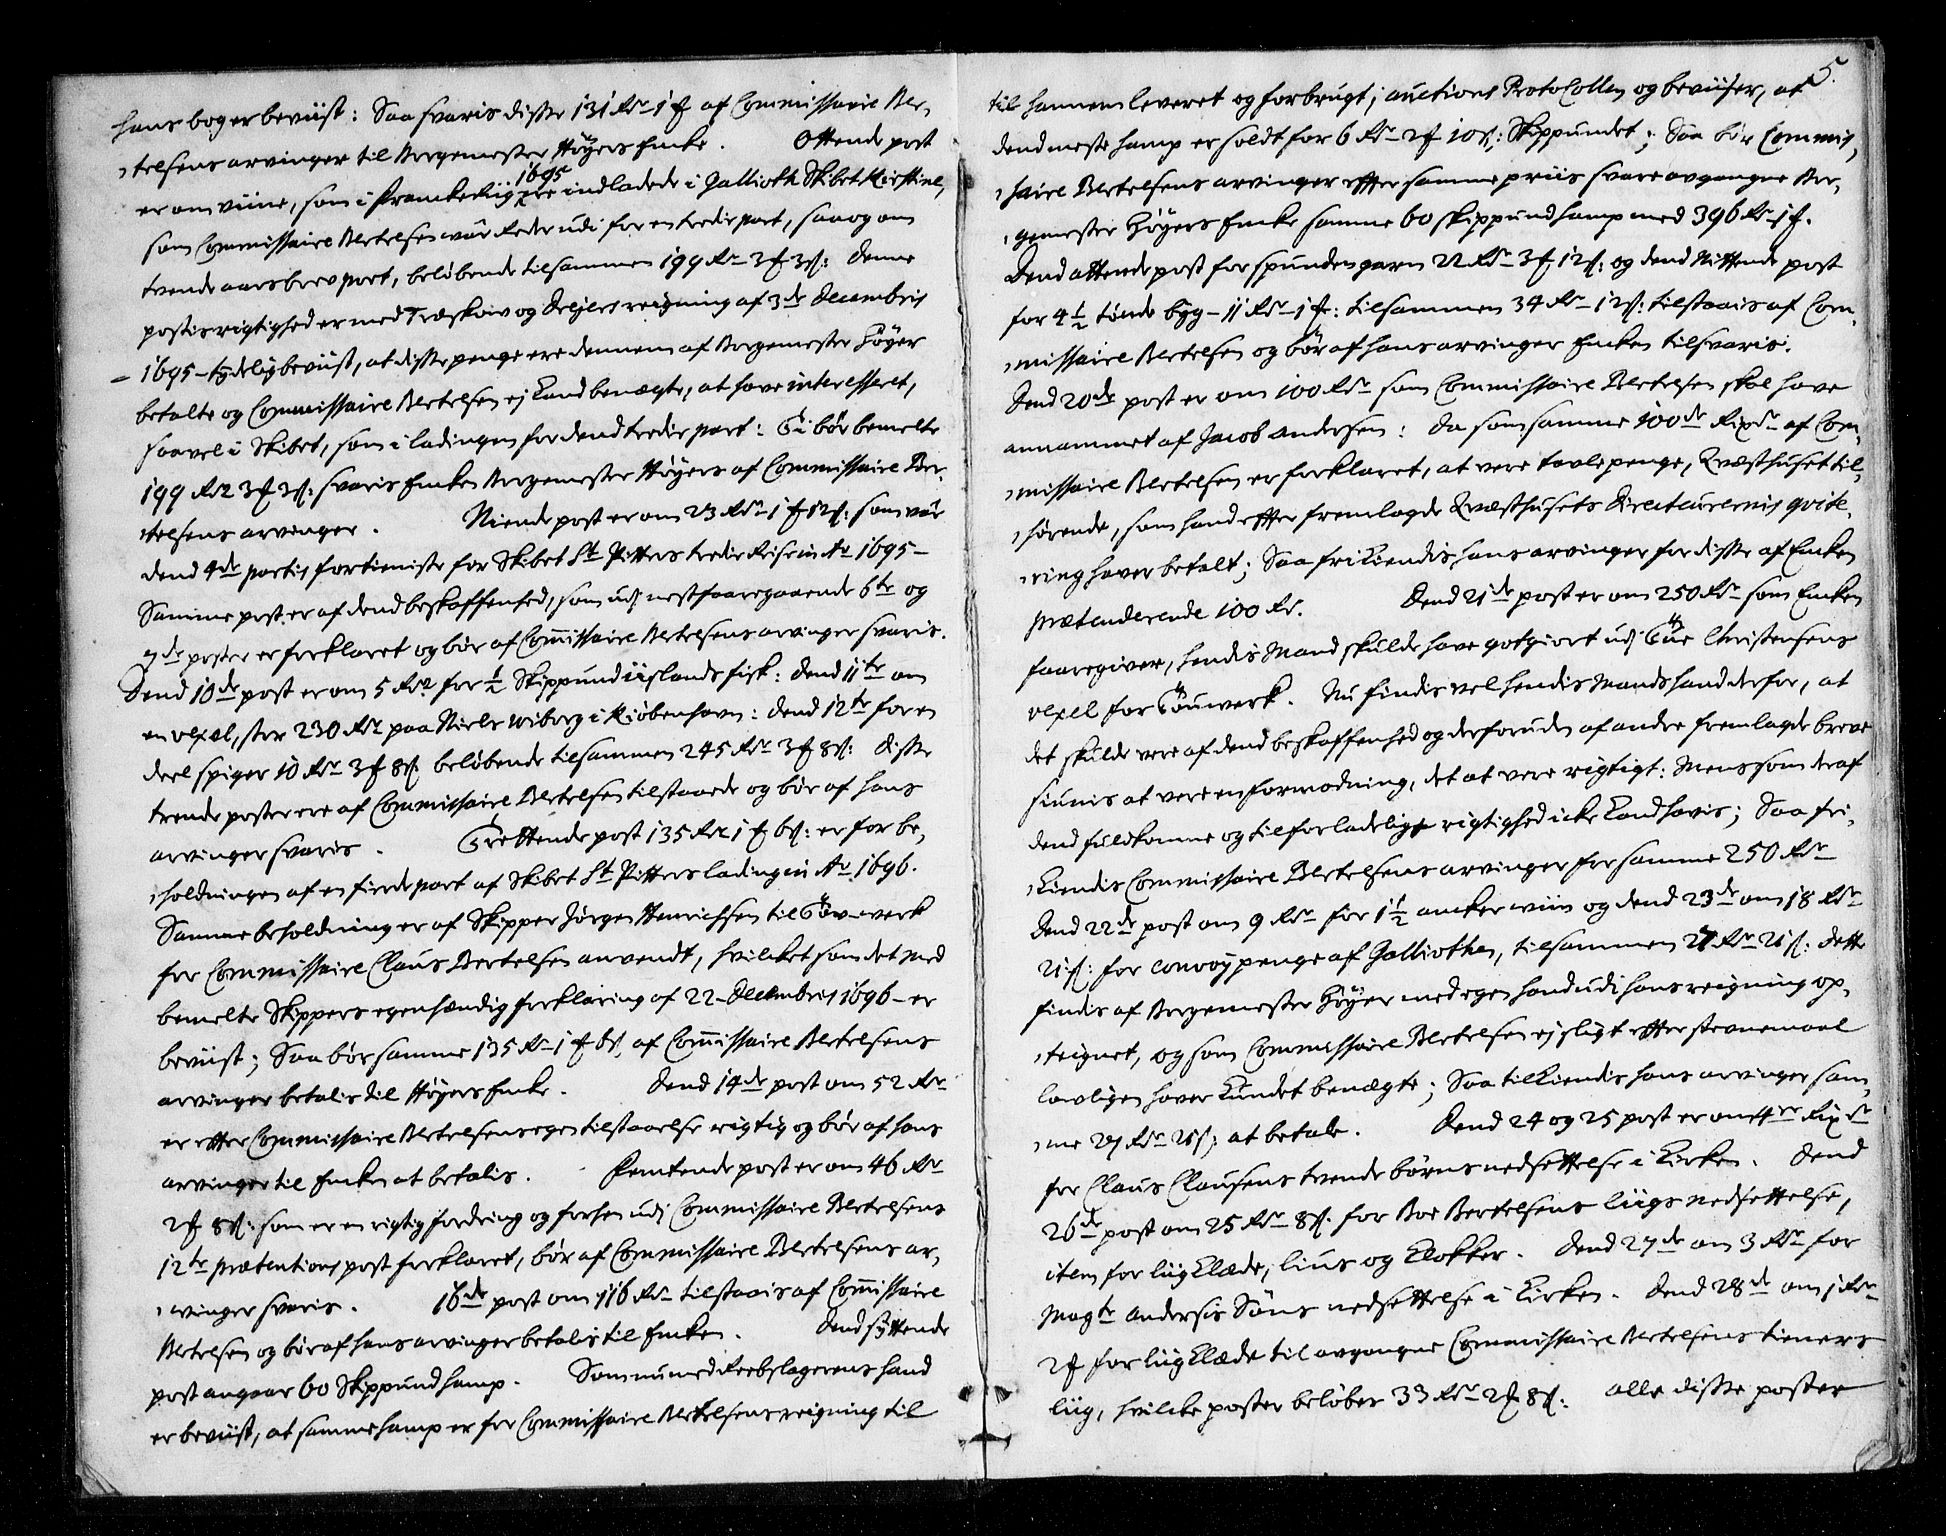 hans bog er beviist: Saa svaris disse 131 Rdr 1 ꝑ af Commissarie Ber-
telsens arvinger til Borgemester Höyers Encke. Ottende post
er om viine, som i Franckerig 1695 ere indladede i Gallioth Skibet Kirstine,
som Commissaire Bertelsen vår Reder udi for en tredie part, saa og om
tvende aars brev port, belöbende tilsammen 199 Rdr 3 ꝑ 3 ß: denne
postis rigtighed er med Træskow og Deyers reigning af 3de Decembris
1695 – tydelig beviist, at disse penge ere dennem af Borgemester Höyer
betalte og Commissaire Bertelsen ej kand benægte, at have interesseret,
saavel i Skibet, som i ladingen for dend tredie part: Thi bör bemelte
199 Rdr 3 ꝑ 3 ß: svaris Encken Borgemester Höyers af Commissaire Ber-
telsens arvinger. Niende post er om 23 Rdr 1 ꝑ 12 ß: som vår
dend 4de partis fortieniste for Skibet St Pitters tredie Reise in Ao 1695 –
Samme post er af dend beskaffenhed, som udj nestforegaaende 6te og
7de poster er forklaret og bör af Commissaire Bertelsens arvinger svaris.
Dend 10de post er om 5 Rdr for ½ Skippund iislands fisk: dend 11te om
en vexel, stor 230 Rdr paa Niels Wiborg i Kiöbenhavn: dend 12te for en
deel spiger 10 Rdr 3 ꝑ 8 ß belöbende tilsammen 245 Rdr 3 ꝑ 8 ß: disse
trende poster ere af Commissaire Bertelsen tilstaaede og bör af hans
arvinger svaris. Trettende post 135 Rdr 1 ꝑ 6 ß: er for be-
holdningen af en fierde part af Skibet St Pitters lading in Ao 1696.
Samme beholdning er af Skipper Jörgen Henrichsen til Tov-werk
for Commissaire Claus Bertelsen anvendt, hvilcket som det med
bemelte Skippers egenhændig forklaring af 22 Decembris 1696 – er
beviist; Saa bör samme 135 Rdr 1 ꝑ 6 ß af Commissaire Bertelsens
arvinger betalis til Höyers Encke. Dend 14de post om 52 Rdr
er efter Commissaire Bertelsens egen tilstaaelse rigtig og bör af hans
arvinger til Encken at betalis. Femtende post er om 46 Rdr
2 ꝑ 8 ß: som er en rigtig fordring og forhen udj Commissaire Bertelsens
12te prætentions post forklaret, bör af Commissaire Bertelsens ar-
vinger svaris. 16de post om 116 Rdr tilstaais af Commissaire
Bertelsen og bör af hans arvinger betalis til Encken. Dend syttende
post angaar 60 Skippund hamp. Som nu med Reebslagerens haand
er beviist, at samme hamp er for Commissaire Bertelsens reigning til
5.
til hannem leveret og forbrugt; auctions Protocollen og beviiser, at
dend meste hamp er soldt for 6 Rdr 2 ꝑ 10 ß: Skippundet; Saa bör Commis-
saire Bertelsens arvinger efter samme priis svare avgangne Bor-
gemester Höyers Encke samme 60 skippund hamp med 396 Rdr 1 ꝑ.
Dend attende post for spunden garn 22 Rdr 3 ꝑ 12 ß: og dend Nittende post
for 4½ tönde byg – 11 Rdr 1 ꝑ: tilsammen 34 Rdr 12 ß: tilstaais af Com-
missaire Bertelsen og bör af hans arvinger Encken tilsvaris.
Dend 20de post er om 100 Rdr som Commissaire Bertelsen skal have
annammet af Jacob Andersen: da som samme 100de Rixdr af Com-
missaire Bertelsen er forklaret, at vere tavle penge, Qvæsthuset til-
hörende, som hand efter fremlagde Qvæsthusets Directeurernis qvite-
ring haver betalt; Saa frikiendis hans arvinger for disse af Encken
prætenderende 100 Rdr. Dend 21de post er om 250 Rdr som Encken
foregiver, hendis Mand skulde have gotgiort udj Tue Christensens
vexel for Touwerk. Nu findis vel hendis Mands haand derfor, at
det skulde vere af dend beskaffenhed og derforuden af andre fremlagde breve
siunis at vere en formodning, det at vere rigtigt: Mens som deraf
dend fuldkomne og tilforladelige rigtighed icke kand havis; Saa fri-
kiendis Commissaire Bertelsens arvinger for samme 250 Rdr
Dend 22de post om 9 Rdr for 1½ ancker wiin og dend 23de om 18 Rdr
21 ß: for convoy penge af Galliothen, tilsammen 27 Rdr 21 ß: dette
findis af Borgemester Höyer med egen haand udi hans reigning op-
teignet, og som Commissaire Bertelsen ej sligt efter stevnemaal
lovligen haver kundet benægte; Saa tilkiendis hans arvinger sam-
me 27 Rdr 21 ß: at betale. Dend 24 og 25 post er om 4re Rixdr
for Claus Clausens tvende börns nedsettelse i kirken. Dend
26de post om 25 Rdr 8 ß. for Boe Bertelsens liigs nedsettelse,
item for liigklæde, lius og klokker. Dend 27de om 3 Rdr for
Magte Andersis Söns nedsettelse i kirken. Dend 28de om 1 Rdr
2 ꝑ for liigklæde til avgangne Commissaire Bertelsens tieners
liig, hvilcke poster belöber 33 Rdr 2 ꝑ 8 ß: alle disse poster